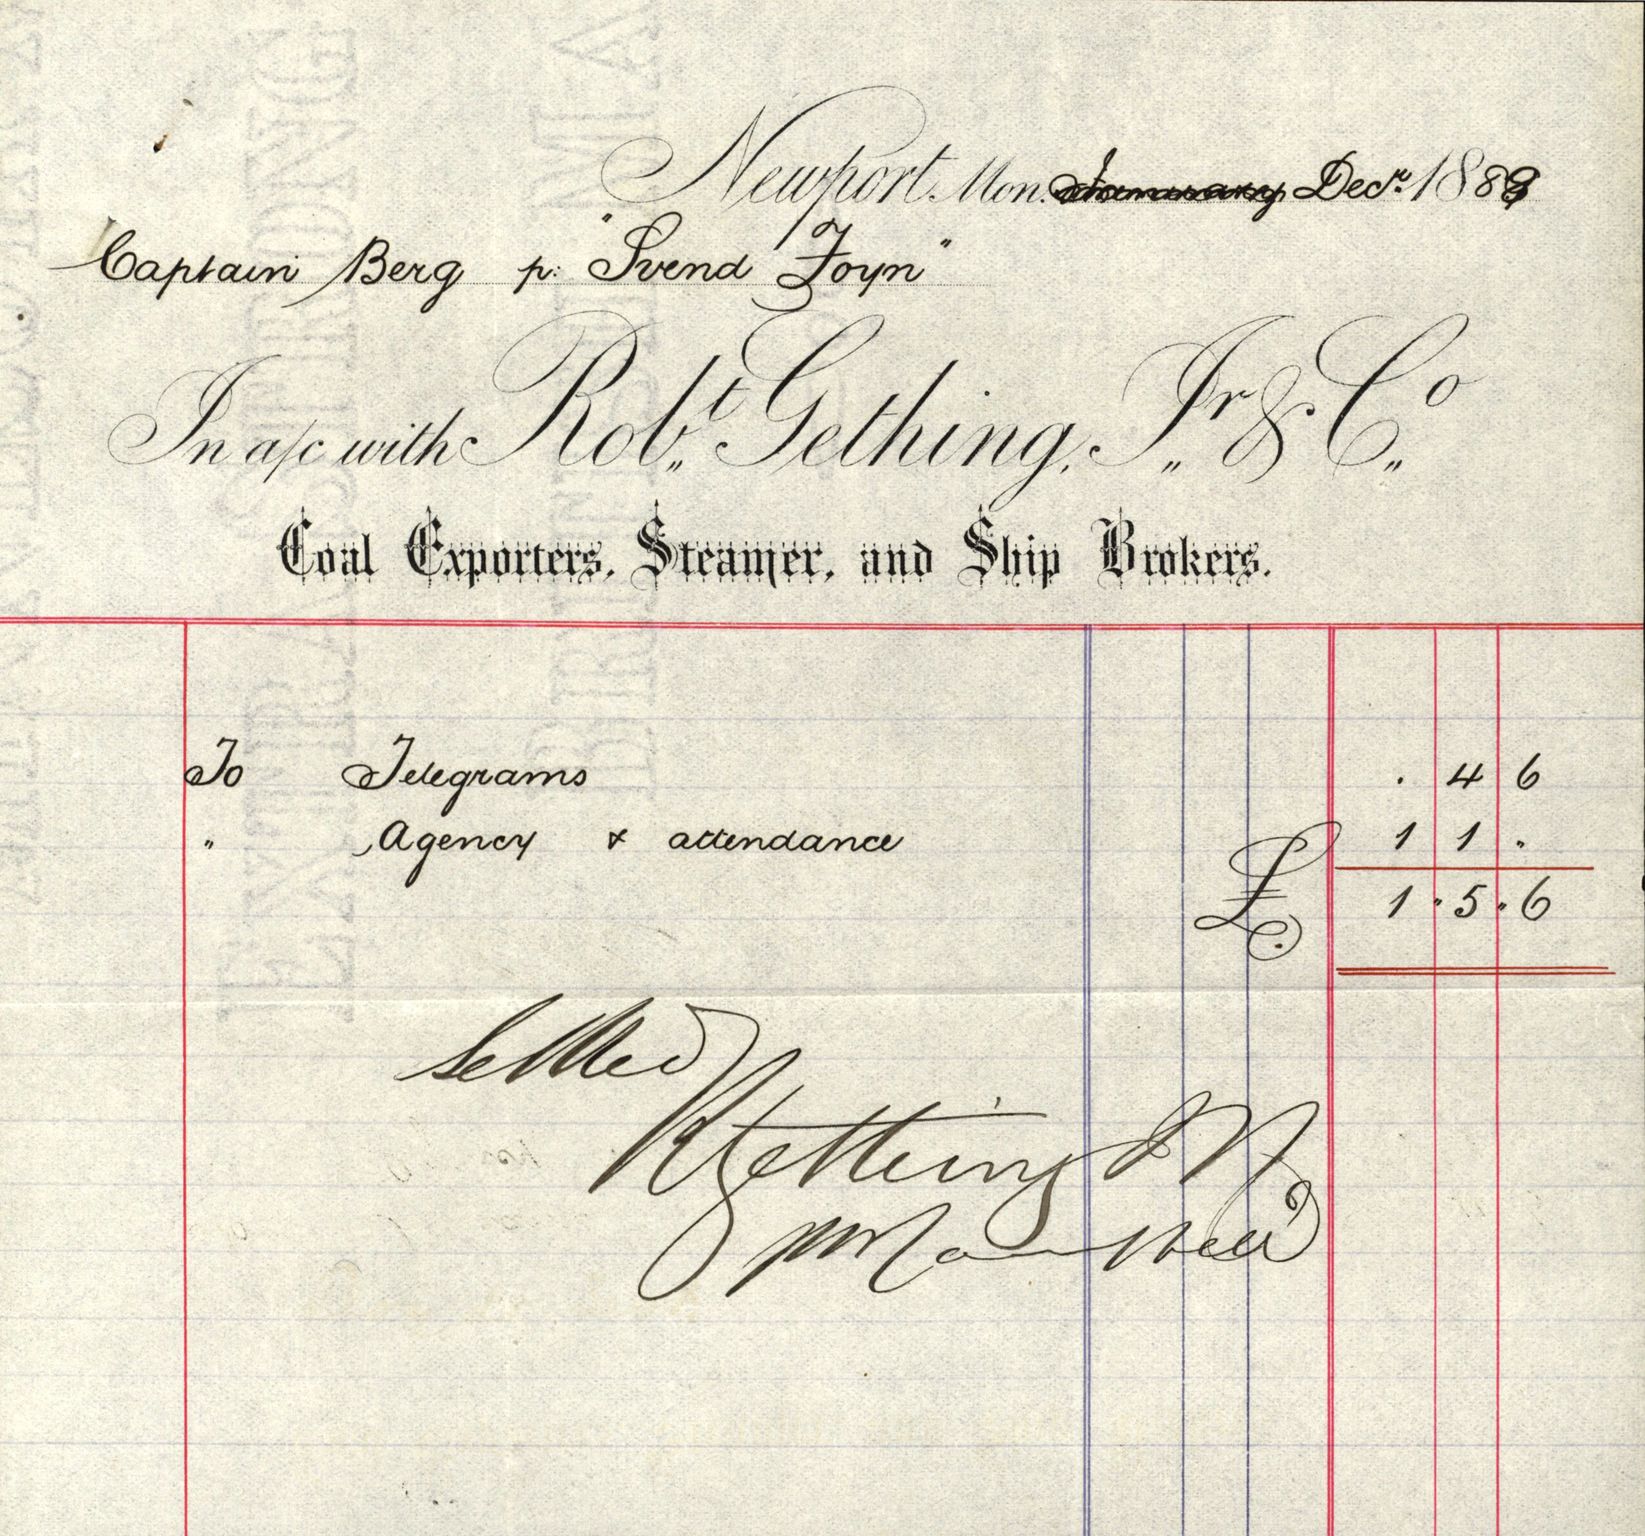 Newport, Mon. January Decr. 188
Captain Berg p: "Svend Foyn"
In a/c with Robt. Gething, Jr. & Co.
Coal Exporters, Steamer, and Ship Brokers.
To Telegrams . 4 6
" Agency & attendance 1 1 .
£ 1 . 5 . 6
Settled
R Gething Jr